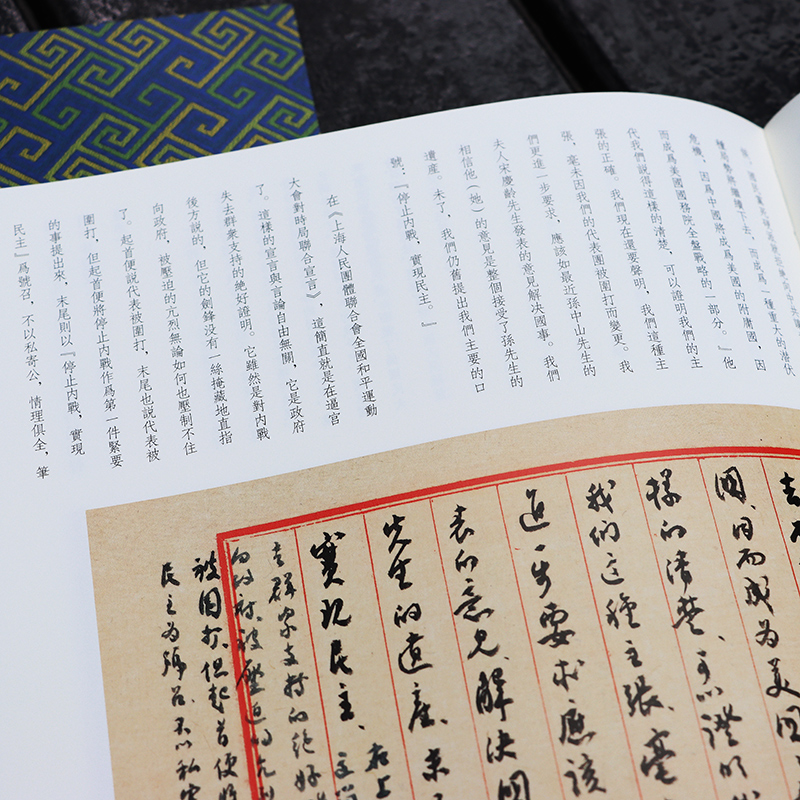 種局勢將繼續下去，而成爲一種重大的潛伏
危機，因爲中國將成爲美國的附庸國，因
而成爲美國國務院全盤戰略的一部分。』他
代我們說得這樣的清楚，可以證明我們的主
張的正確。我們現在還要聲明，我們這種主
張，毫未因我們的代表團被圍打而變更。我
們更進一步要求，應該如最近孫中山先生的
夫人宋慶齡先生發表的意見解決國事。我們
相信他（她）的意見是整個接受了孫先生的
遺產。末了，我們仍舊提出我們主要的口
號：『停止內戰，實現民主。』
在《上海人民團體聯合會全國和平運動
大會對時局聯合宣言》，這簡直就是在逼官
了。這樣的宣言與言論自由無關，它是政府
失去群衆支持的絕好證明。它雖然是對內戰
後方説的，但它的劍鋒没有一絲掩藏地直指
向政府，被壓迫的亢烈無論如何也壓制不住
了。起首便説代表被圍打，末尾也説代表被
圍打，但起首便將停止內戰作爲第一件緊要
的事提出來，末尾則以『停止內戰，實現
民主』爲號召，不以私寄公，情理俱全，筆
國，因而成为美国
樣的清楚，可以證明
我们这種主張，毫
進一步要求應該
表的意见，解决国
先生的遺產。末
實現民主。
去群众支持的绝好
向政府，被壓迫的亢烈
被圍打，但起首便將
民主为號召，不以私寄